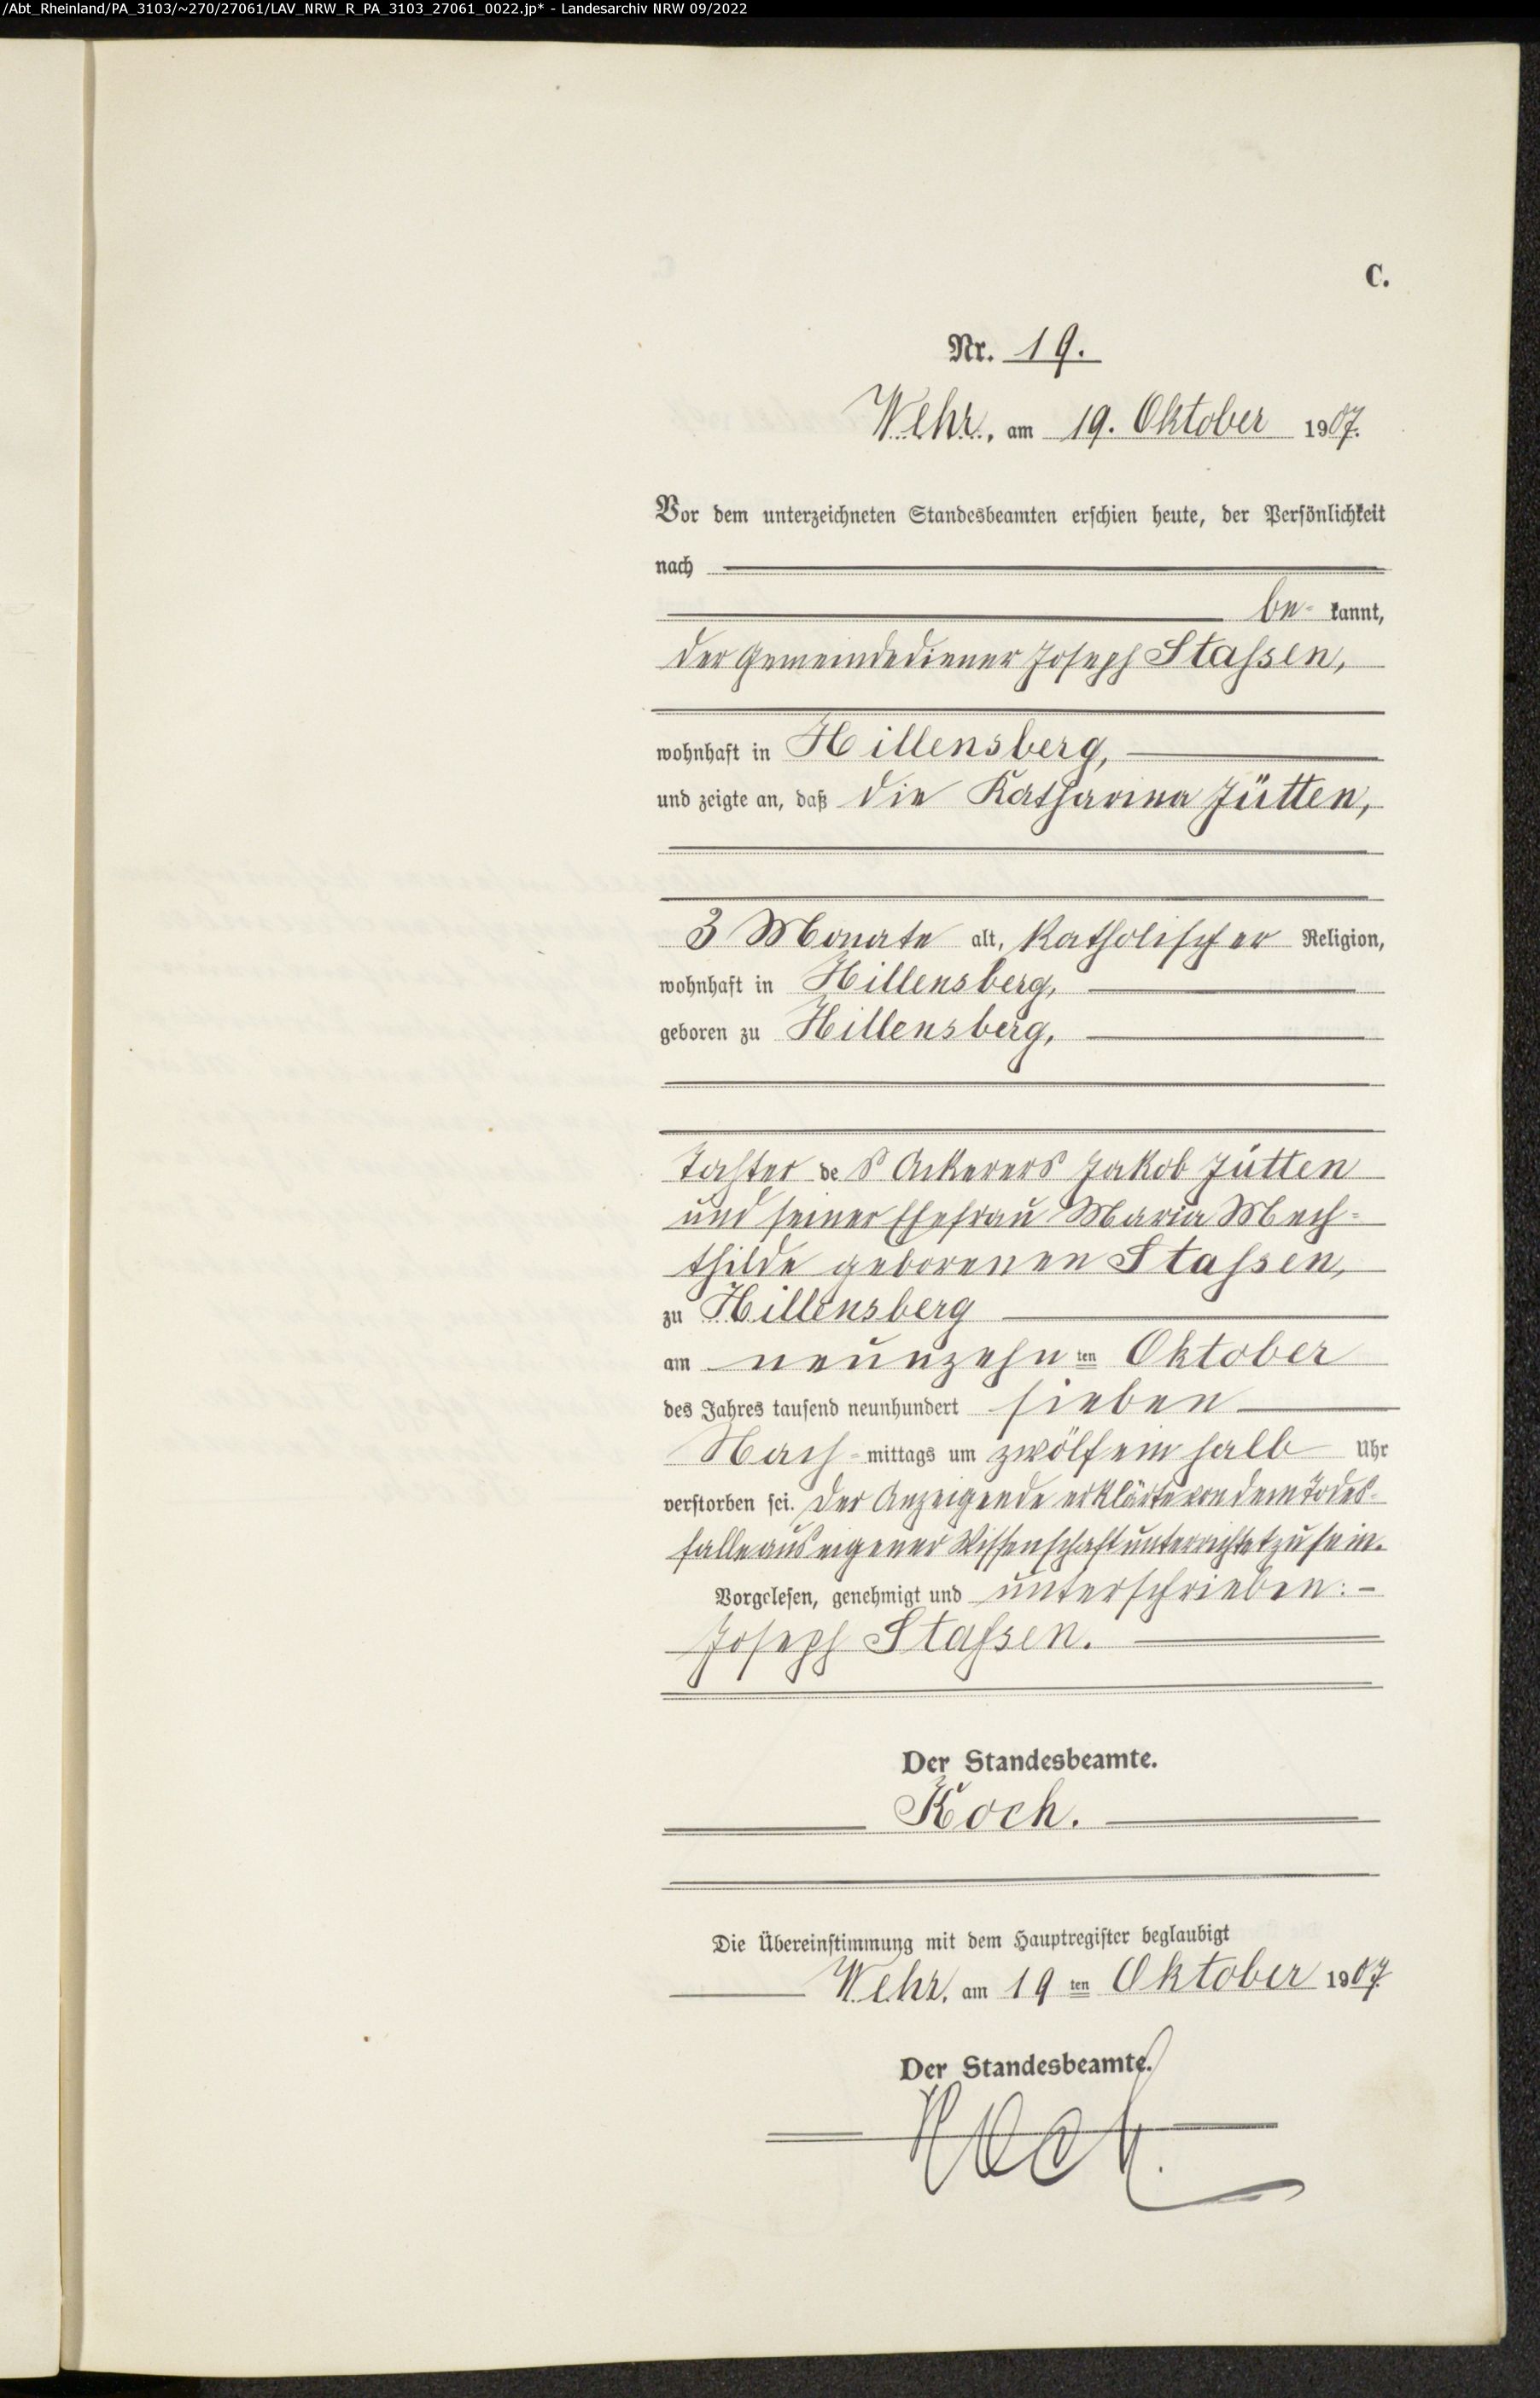 /Abt_Rheinland/PA_3103/~270/27061/LAV_NRW_R_PA_3103_27061_0022.jp* - Landesarchiv NRW 09/2022
C.
Nr. 19.
Wehr, am 19. Oktober 1907.
Vor dem unterzeichneten Standesbeamten erschien heute, der Persönlichkeit
nach
be- kannt,
der Gemeindediener Joseph Staßen,
wohnhaft in Hillensberg,
und zeigte an, daß die Katharina Jütten,
3 Monate alt, katholischer Religion,
wohnhaft in Hillensberg,
geboren zu Hillensberg,
Tochter des Ackerers Jakob Jütten
und seiner Ehefrau Maria Mech-
thilde geborenen Staßen,
zu Hillensberg
am neunzehn ten Oktober
des Jahres tausend neunhundert sieben
Nach-mittags um zwölfeinhalb Uhr
verstorben sei. Der Anzeigende erklärte von dem Todes-
falle aus eigener Wissenschaft unterrichtet zu sein.
Vorgelesen, genehmigt und unterschrieben: -
Joseph Staßen.
Der Standesbeamte.
Koch.
Die Übereinstimmung mit dem Hauptregister beglaubigt
Wehr, am 19 ten Oktober 1907.
Der Standesbeamte.
Koch.